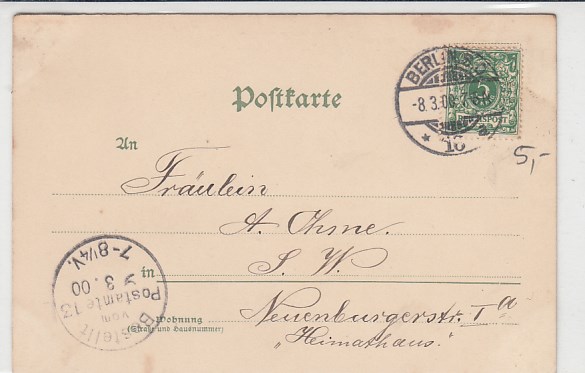 Postkarte
BERLIN S.
-8.3.00.7-8N.
* 16
5
REICHSPOST
5,-
An
Fräulein
A. Ohme.
S. W.
in
Neuenburgerstr. I a
Wohnung
(Straße und Hausnummer)
"Heimathaus."
Bestellt
vom
Postamte 13
9 3.00
7-8¼V.